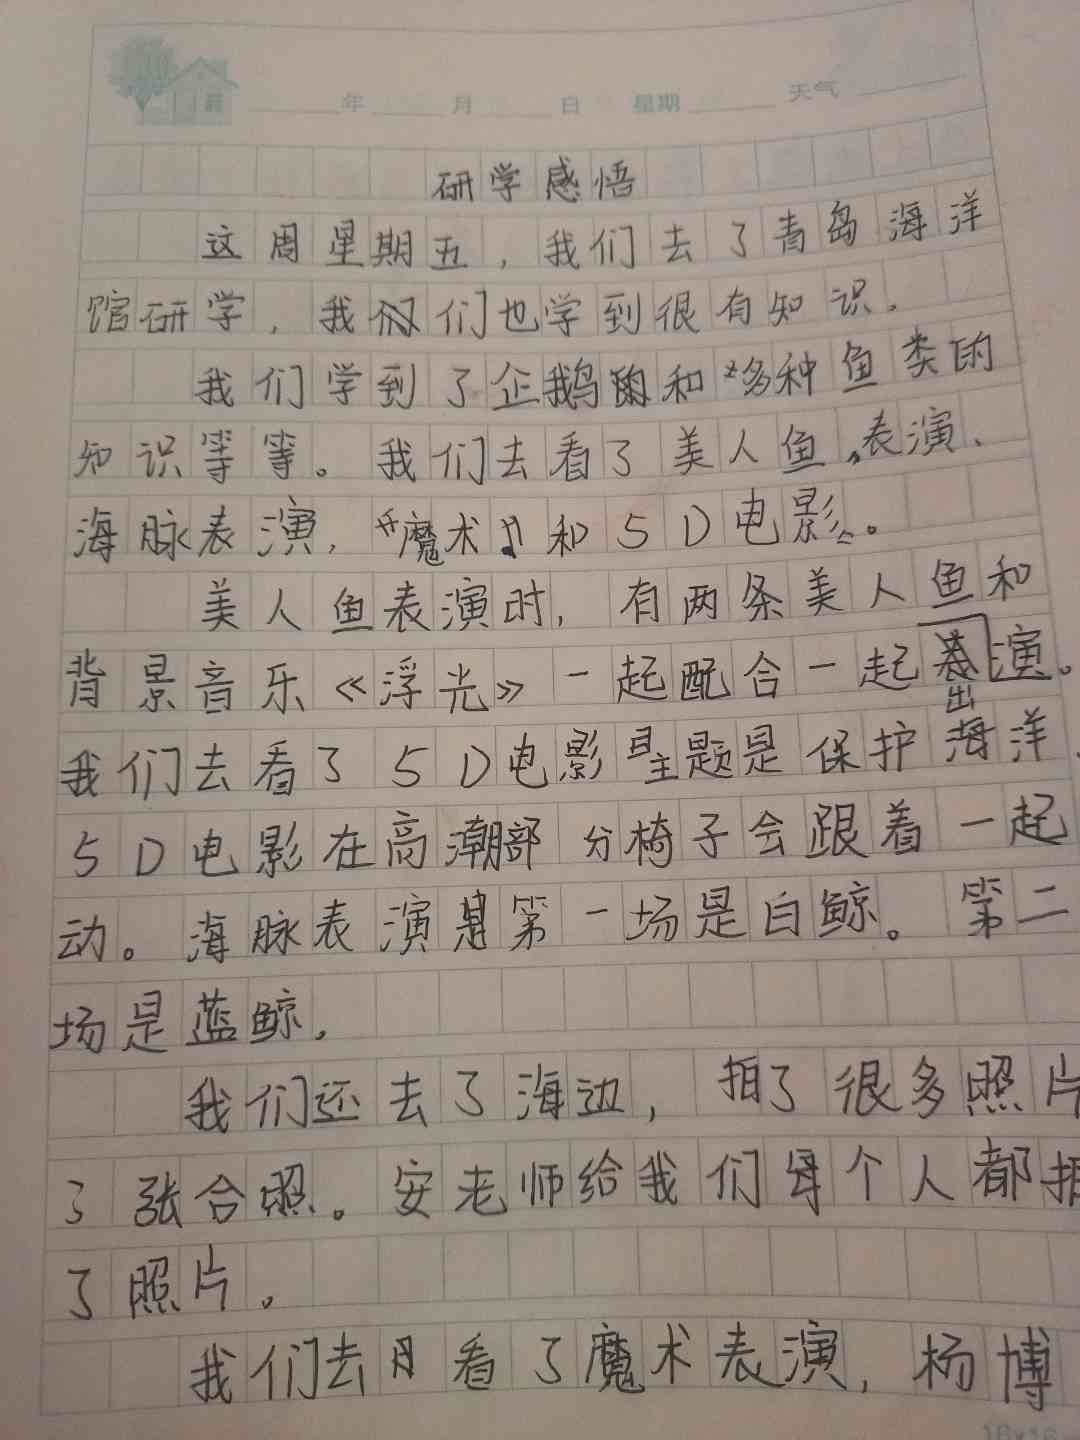 年 月 日 星期 天气
研学感悟
这周星期五，我们去了青岛海洋
馆研学，我们也学到很有知识。
我们学到了企鹅和多种鱼类的
知识等等。我们去看了美人鱼表演、
海脉表演，《魔术》和5D电影。
美人鱼表演时，有两条美人鱼和
背景音乐《浮光》一起配合一起演出。
我们去看了5D电影主题是保护海洋.
5D电影在高潮部分椅子会跟着一起
动。海脉表演第一场是白鲸。第二
场是蓝鲸。
我们还去了海边，拍了很多照片
了张合照。安老师给我们每个人都拍
了照片。
我们去看了魔术表演，杨博